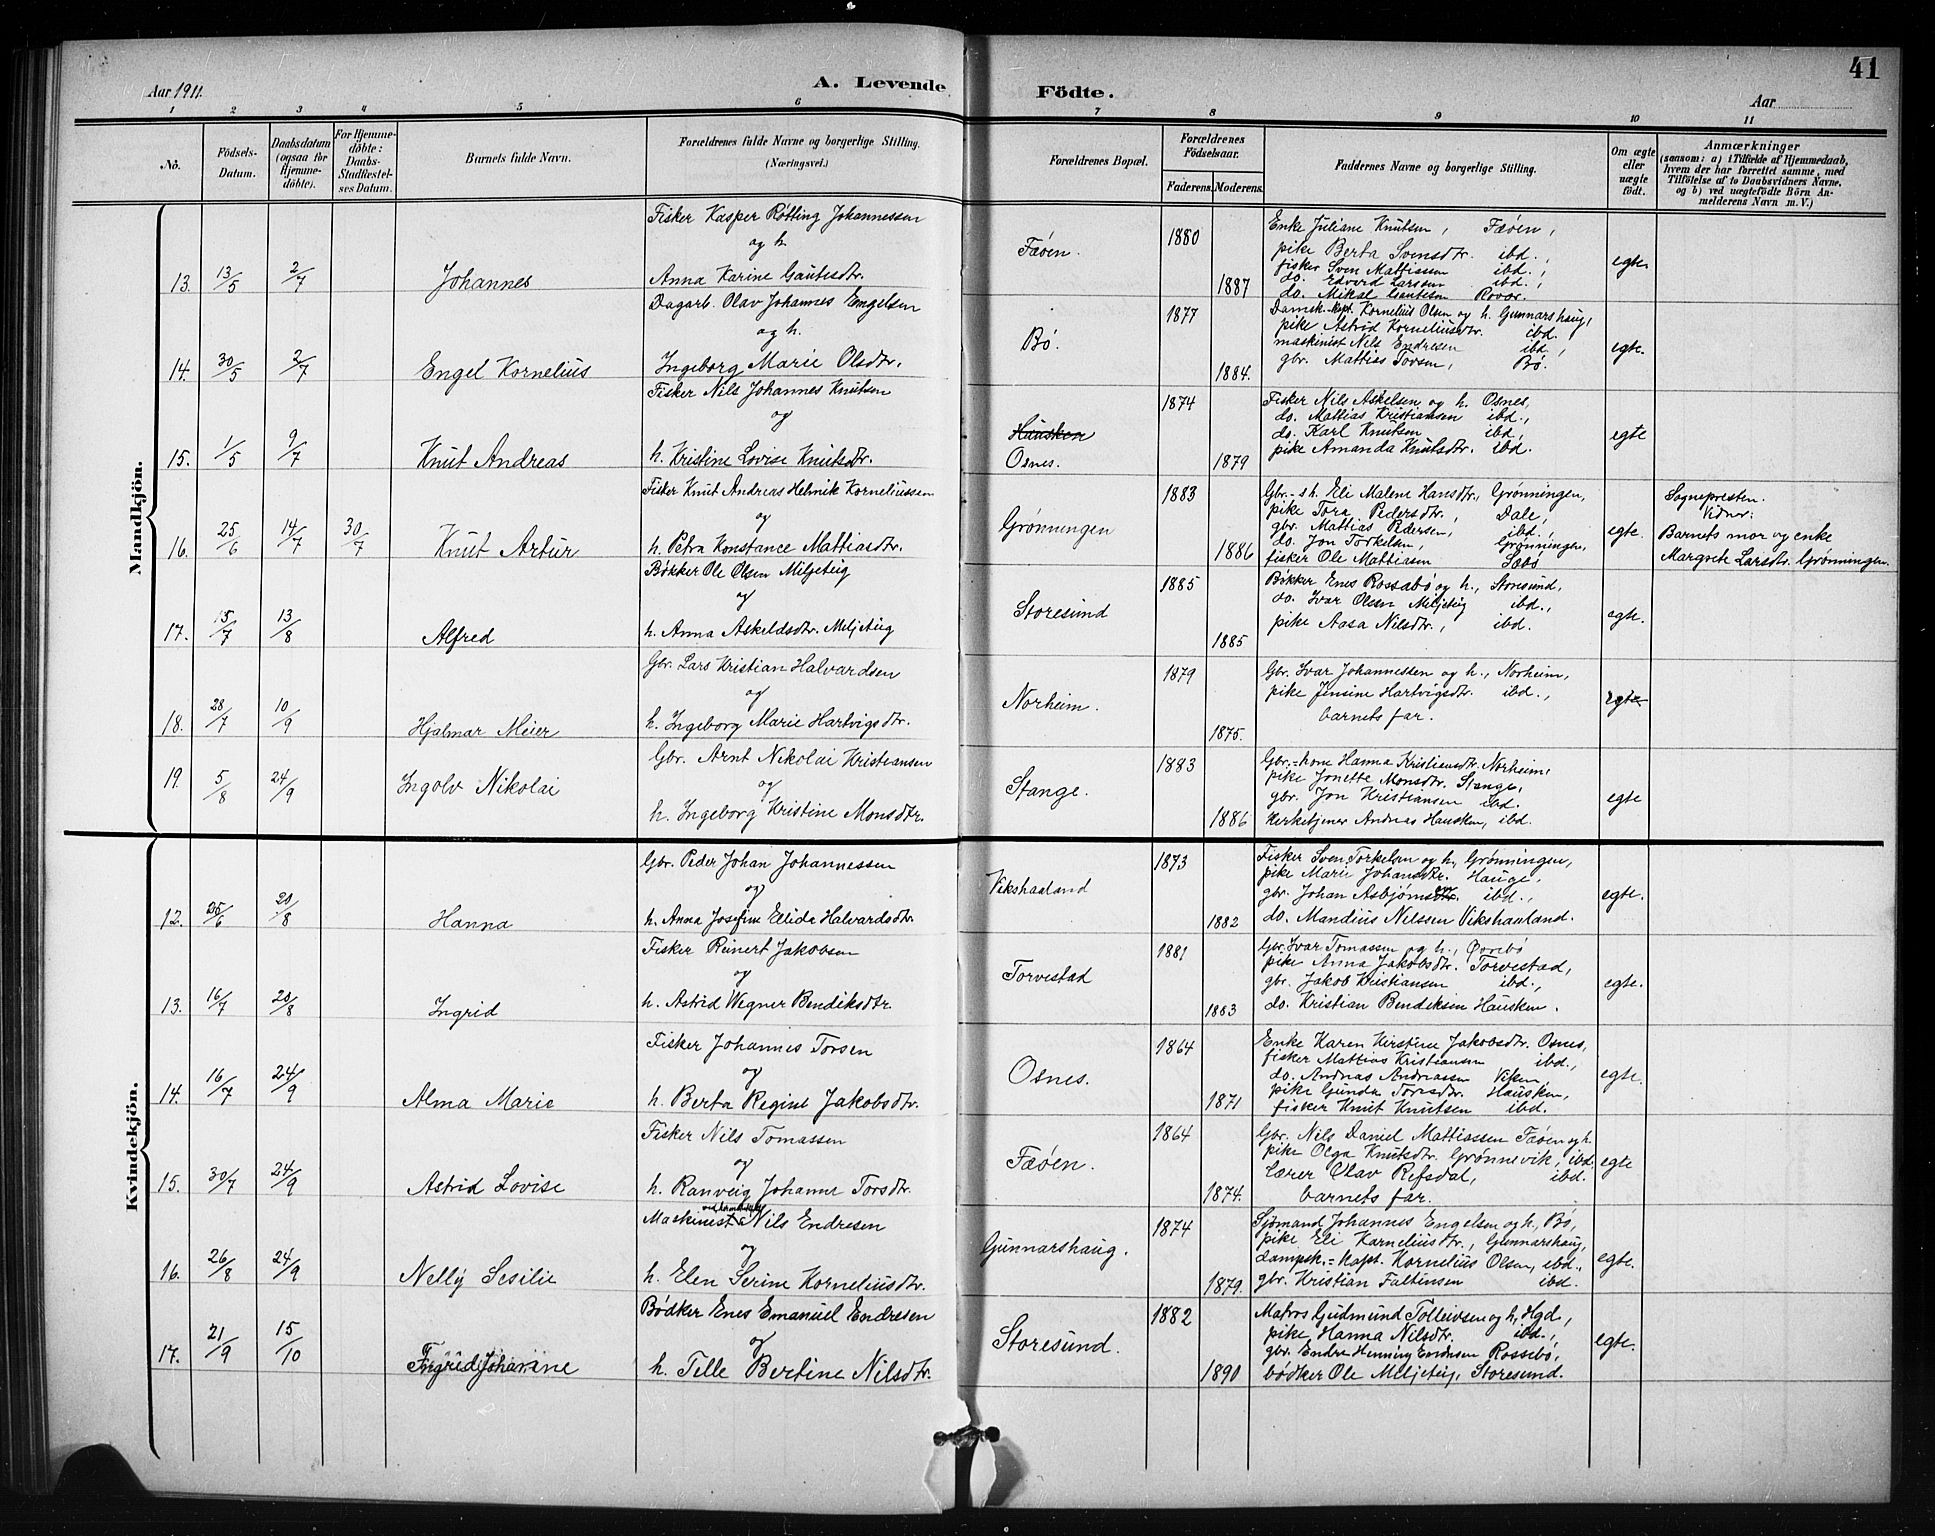 Aar 1911. A. Levende Födte. Aar 41
1 2 3 4 5 6 7 8 9 10 11
No. Födsels-Datum. Daabsdatum (ogsaa for Hjemmedöbte). For Hjemmedöbte: Daabs-Stadfestelses Datum. Barnets fulde Navn. Forældrenes fulde Navne og borgerlige Stilling. (Næringsvei.) Forældrenes Bopæl. Forældrenes Födselsaar. Faderens. Moderens. Faddernes Navne og borgerlige Stilling. Om ægte eller uægte födt. Anmærkninger (saasom: a) i Tilfælde af Hjemmedaab, hvem der har forrettet samme, med Tilföielse af to Daabsvidners Navne, og b) ved uægtefödte Börn Anmelderens Navn m. V.)
Mandkjön.
13. 13/5 2/7 Johannes
Fisker Kasper Røtting Johannessen
og h.
Anna Karine Gautesdtr.
Fæøen. 1880 1887
Enke Juliane Knutsen, Fæøen,
pike Berta Svensdtr. ibd.,
fisker Sven Mattissen ibd.,
do. Edvard Larssen ibd.,
do. Mikal Gautesen Rovær.
egte.
14. 30/5 2/7 Engel Kornelius
Dagarb. Olav Johannes Engelsen
og h.
Ingeborg Marie Olsdtr.
Bø. 1877 1884.
Damsk.-kapt. Kornelius Olsen og h. Gunnarshaug,
pike Astrid Korneliusdtr. ibd.
maskinist Nils Endresen ibd.,
gbr. Mattias Torsen, Bø.
egte.
15. 1/5 9/7 Knut Andreas
Fisker Nils Johannes Knutsen
og
h. Kristine Lovise Knutsdtr.
Hausken
Osnes. 1874 1879
Fisker Nils Askelsen og h. Osnes,
do. Mattias Kristiansen ibd.,
do. Karl Knutsen ibd,
pike Amanda Knutsdtr. ibd.
egte
16. 25/6 14/7 30/7 Knut Artur
Fisker Knut Andreas Helmik Korneliussen
og
h. Petra Konstance Mattiasdtr.
Grønningen 1883 1886
Gbr.-sh. Eli Malene Hansdtr., Grønningen,
pike Tora Pedersdtr., Dale,
gbr. Mattias Pedersen, ibd.,
do. Jon Torkelsen, Grønningen,
fisker Ole Mattiasen
egte.
Sognepresten.
Vidner:
Barnets mor og enke
Margrete Larsdtr. Grønningen.
17. 15/7 13/8 Alfred
Bøkker Ole Olsen Miljeteig
og
h. Anna Askeldsdtr. Miljeteig
Storesund 1885 1885
Bøkker Enes Rossabø og h., Storesund,
do. Ivar Olsen Miljeteig ibd.,
pike Aasa Nilsdtr., ibd.
egte.
18. 28/7 10/9 Hjalmar Meier
Gbr. Lars Kristian Halvardsen
og
h. Ingeborg Marie Hartvigsdtr.
Norheim. 1879 1875.
Gbr. Ivar Johannessen og h., Norheim,
pike Jensine Hartvigsdtr. ibd.,
barnets far.
egte
19. 5/8 24/9 Ingolv Nikolai
Gbr. Arnt Nikolai Kristiansen
og
h. Ingeborg Kristine Monsdtr.
Stange. 1883 1886
Gbr.-kone Hanna Kristiansdtr. Norheim,
pike Jonette Monsdtr. Stange,
gbr. Jon Kristiansen ibd.
Kerketjener Andreas Hausken, ibd.
egte
Kvindekjön.
12. 25/6 20/8 Hanna
Gbr. Peder Johan Johannessen
og
h. Anna Josefine Elida Halvardsdtr.
Vikshaaland 1873 1882
Fisker Sven Torkelsen og h, Grønningen,
pike Marie Johansdtr. Hauge,
gbr. Johan Asbjørnsen ibd.,
do. Mandius Nilssen Vikshaaland.
egte.
13. 16/7 20/8 Ingrid
Fisker Reinert Jakobsen
og
h. Astrid Wegner Bendiksdtr.
Torvestad 1881 1883
Gbr. Ivar Tomassen og h.,
pike Anna Jakobsdtr. Torvestad,
gbr. Jakob Kristiansen ibd.,
do. Kristian Bendiksen Hausken.
egte.
14. 16/7 24/9 Alma Marie
Fisker Johannes Torsen
og
h. Berta Regine Jakobsdtr.
Osnes. 1864 1871
Enke Karen Kirstine Jakobsdtr. Osnes,
fisker Mattias Kristiansen ibd.,
do. Andreas Andreassen Viken,
pike Gunda Torsdtr. Hausken,
fisker Knut Knutsen ibd.
egte.
15. 30/7 24/9 Astrid Lovise
Fisker Nils Tomassen
og
h. Ranveig Johanne Torsdtr.
Fæøen. 1864 1874.
Gbr. Nils Daniel Mattiassen Fæøen og h.
pike Olga Knutsdtr. Grønnevik, ibd.
Lærer Olav Refsdal, ibd.
barnets far.
egte
16. 26/8 24/9 Nelly Sesilie
Maskinist Nils Endresen
og
h. Elen Serine Korneliusdtr.
Gunnarshaug. 1874 1879.
Sjømand Johannes Engelsen og h, Bø,
pike Eli Korneliusdtr., Gunnarshaug,
dampsk.-kapt. Kornelius Olsen, ibd.,
gbr. Kristian Faltinsen ibd.
egte.
17. 21/9 15/10 Ingrid Johanne
Bødker Enes Emanuel Endresen
og
h. Telle Bertine Nilsdtr.
Storesund. 1882 1890
Matros Gudmund Tolleivsen og h, Hgd,
pike, Hanna Nilsdtr. ibd.,
gbr. Endre Henning Endresen Rossebø,
bødker Ole Miljeteig, Storesund.
egte.